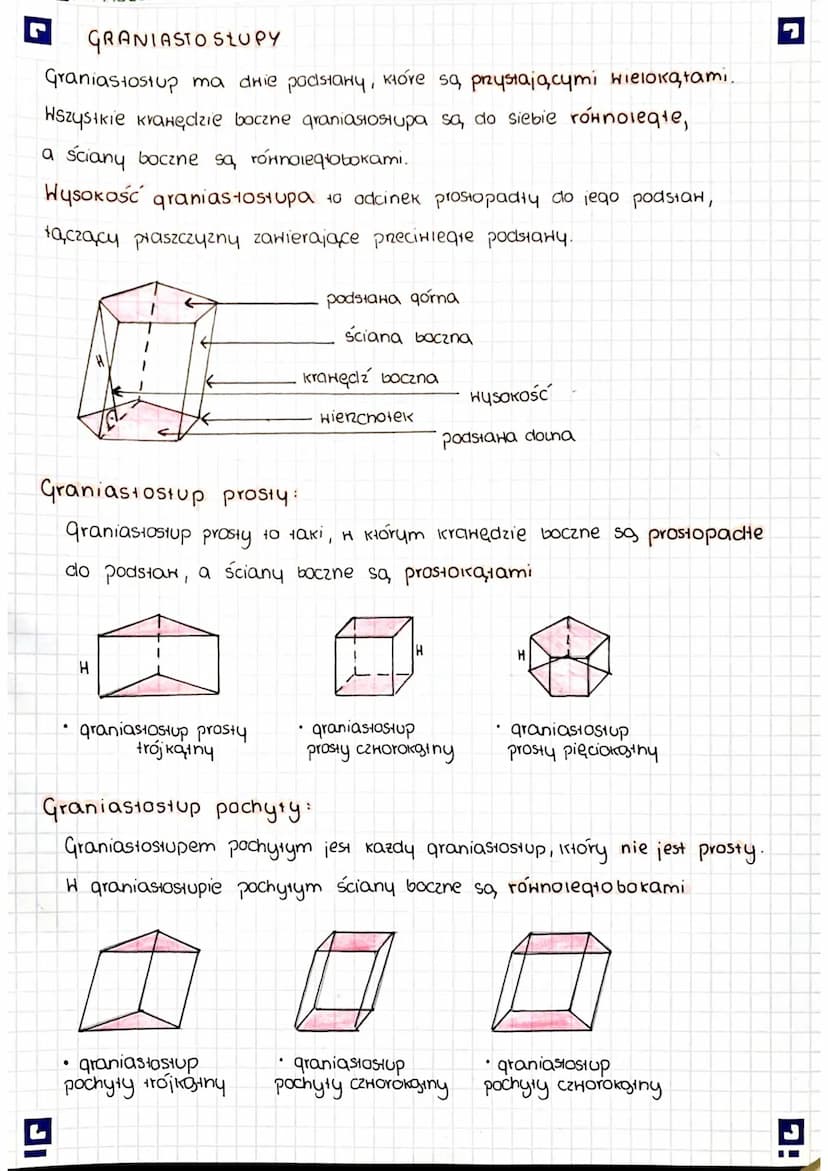 GRANIASTOSŁUPY
Graniastosłup ma dwie podstawy, które są przystającymi wielokątami.
Wszystkie krawędzie boczne graniastosłupa są do siebie równoległe,
a ściany boczne są równoległobokami.
Wysokość graniastosłupa to odcinek prostopadły do jego podstaw,
łączący płaszczyzny zawierające przeciwległe podstawy.
podstawa górna
ściana boczna
H
krawędź boczna
wysokość
wierzchołek
podstawa dolna
Graniastosłup prosty:
Graniastosłup prosty to taki, w którym krawędzie boczne są prostopadłe
do podstaw, a ściany boczne są prostokątami
H
H
H
• graniastosłup prosty
trójkątny
• graniastosłup
prosty czworokątny
• graniastosłup
prosty pięciokątny
Graniastosłup pochyły:
Graniastosłupem pochyłym jest każdy graniastosłup, który nie jest prosty.
W graniastosłupie pochyłym ściany boczne są równoległobokami
• graniastosłup
pochyły trójkątny
• graniastosłup
pochyły czworokątny
• graniastosłup
pochyły czworokątny